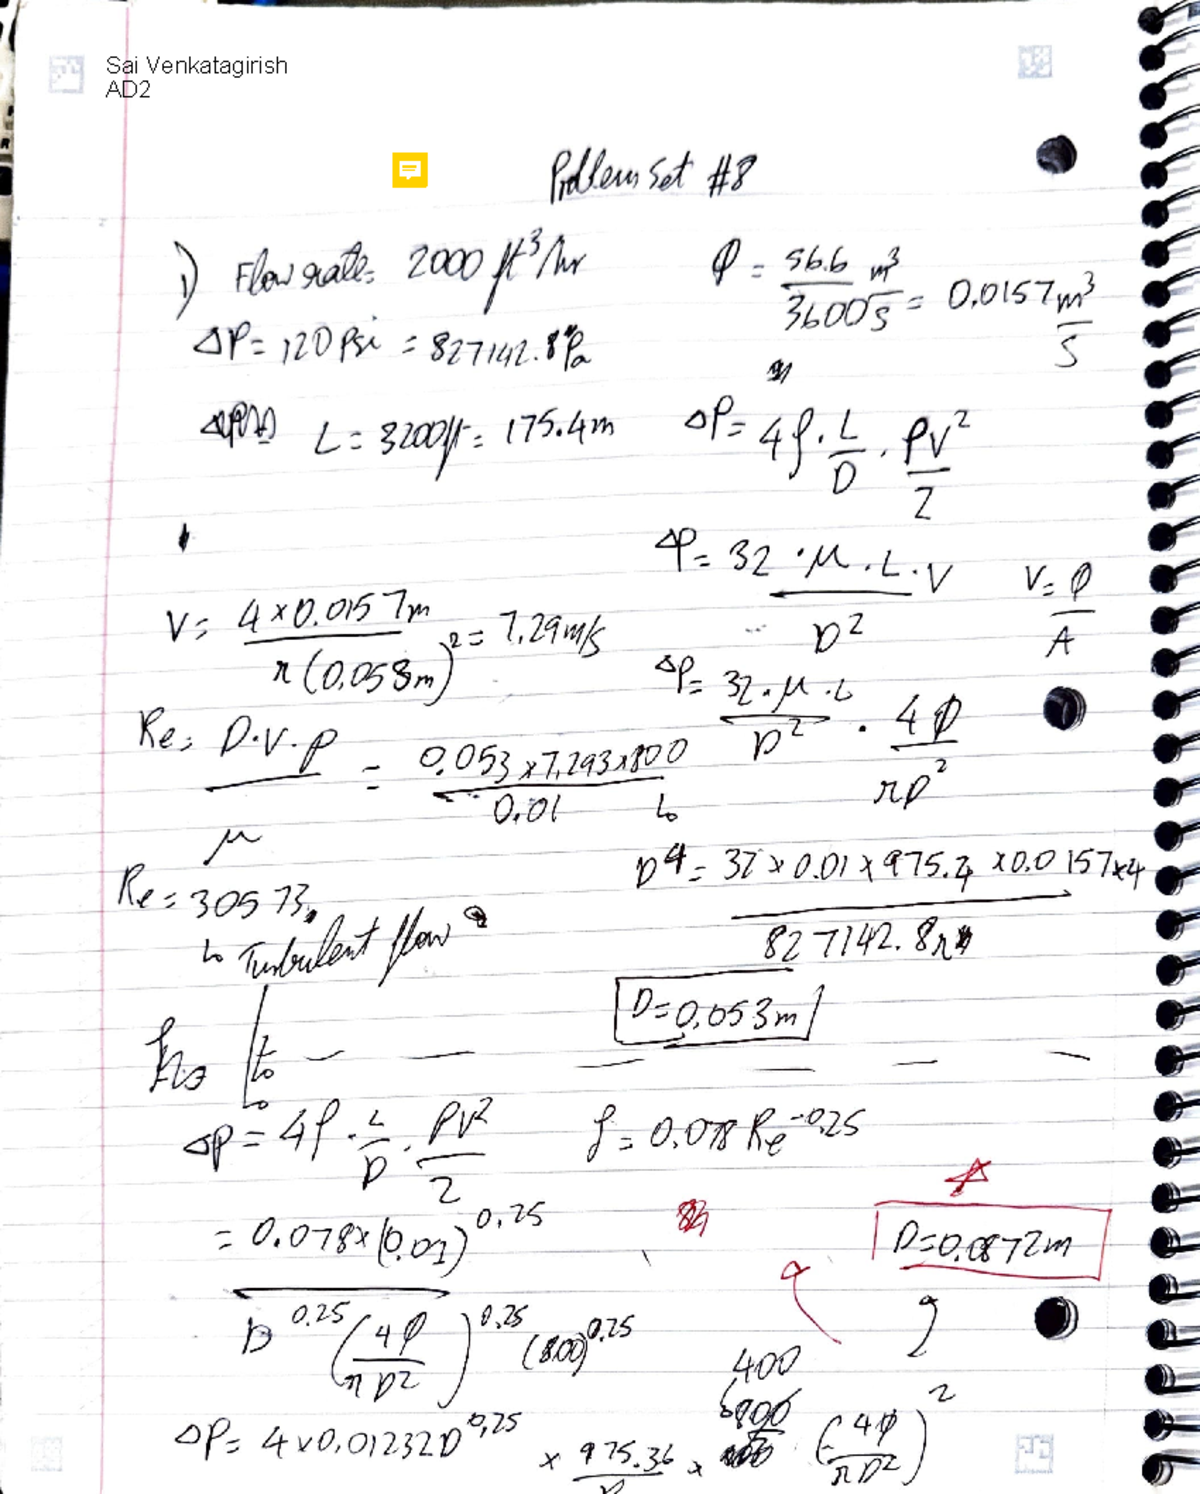 Sai Venkatagirish
AD2
Problem Set #8
1) Flow rate = 2000 ft³/hr
Φ = 56.6 m³ / 3600 s = 0.0157 m³/s
ΔP = 120 psi = 827142.8 Pa
L = 3200 ft = 175.4 m
ΔP = 4f · L/D · ρV²/2
ΔP = 32 · μ · L · V / D²
V = Φ/A
V = 4 × 0.0157 m / π(0.053 m)² = 7.29 m/s
ΔP = 32 · μ · L / D² · 4Φ / πD²
Re = D·V·ρ / μ = 0.053 × 7.293 × 800 / 0.01
D⁴ = 32 × 0.01 × 975.4 × 0.0157 × 4 / 827142.8π
Re = 30573
↳ Turbulent flow
D = 0.053 m
ΔP = 4f · L/D · ρV²/2
f = 0.078 Re^-0.25
= 0.078 × (0.01)^0.25 / D^0.25 (4Φ/πD²)^0.25 (800)^0.25
D = 0.0872 m
400
ΔP = 4 × 0.01232 D^0.25 × 975.36 / D × (4Φ/πD²)²